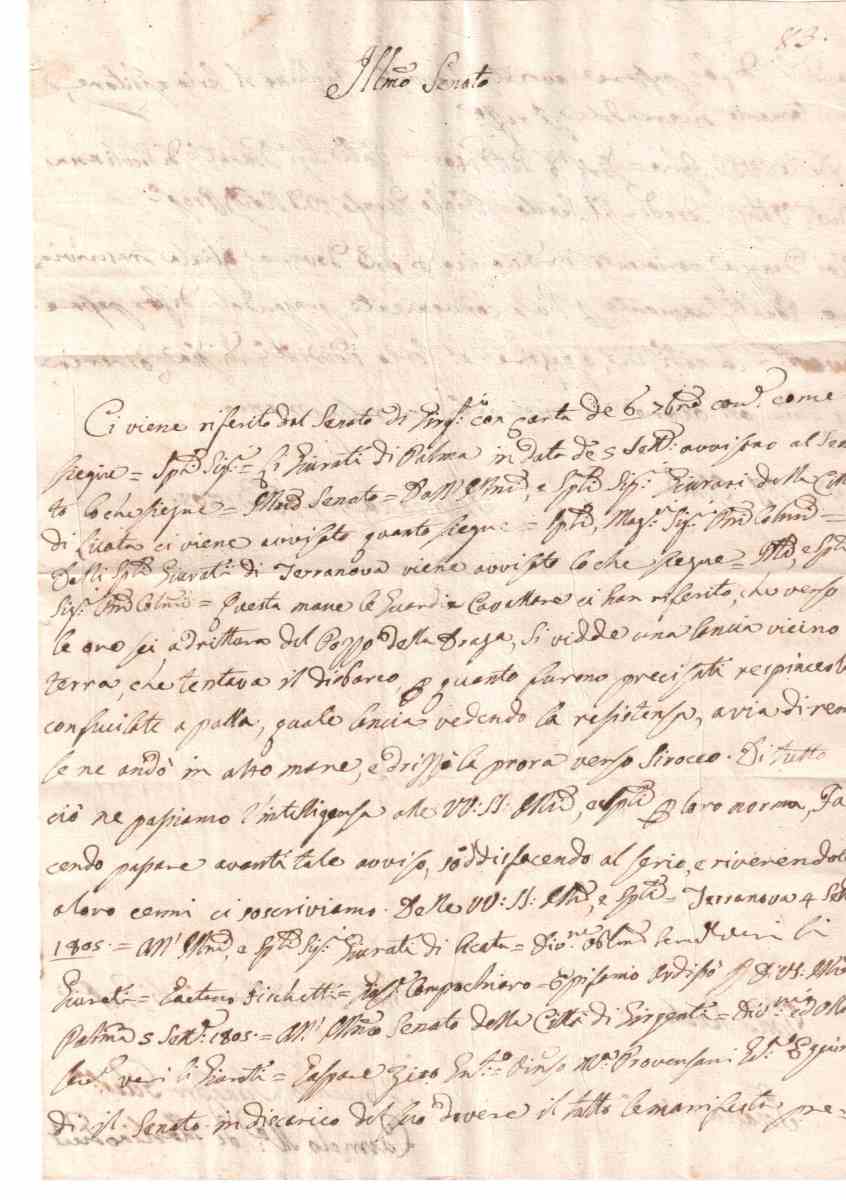 83.
Ill.mo Senato
Ci viene riferito dal Senato di Girg.ti con carta de 6 7bre con.e come
siegue = Sp.li Sig.ri = Li Giurati di Palma in data de 5 Sett.e avvisano al Sena
to lo che siegue = Ill.mo Senato = Dagl'Ill.mi, e Sp.li Sig.ri Giurati della Città
di Licata ci viene avvisato quanto siegue = Sp.li, Mag.ci Sig.ri P.ni Col.mi =
Dalli Sp.li Giurati di Terranova viene avvisato lo che siegue = Ill.mi, e Sp.li
Sig.ri P.ni Col.mi = Questa mane le Guardie Cavallare ci han riferito, che verso
le ore sei a drittura del Pozzo della Draga, si vidde una lancia vicino
terra, che tentava il disbarco, per quanto furono precisati respincerla
con fucilate a palla, quale lancia vedendo la resistenza, a via di remi
se ne andò in alto mare, e drizzò la prora verso Sirocco. Di tutto
ciò ne passiamo l'intelligenza alle VV: SS: Ill.mi, e Sp.li per loro norma, Fa
cendo passare avanti tale avviso, soddisfacendo al serio, e riverendole
a loro cenni ci soscriviamo. Delle VV: SS: Ill.mi, e Sp.li = Terranova 4 Sett
1805. = All'Ill.mi, e Sp.li Sig.ri Giurati di Licata = Div.mi Obl.mi Serv. veri li
Giurati = Gaetano = Campochiaro = Epifanio di VS. Ill.me
Palma 5 Sett.e 1805. = All'Ill.mo Senato della Città di Girgenti = Div.mi ed Obl
Ser.i veri li Giurati = Gaspare Zico Provenzani
di il Senato in discarico del suo dovere il tutto le manifesta, pre=